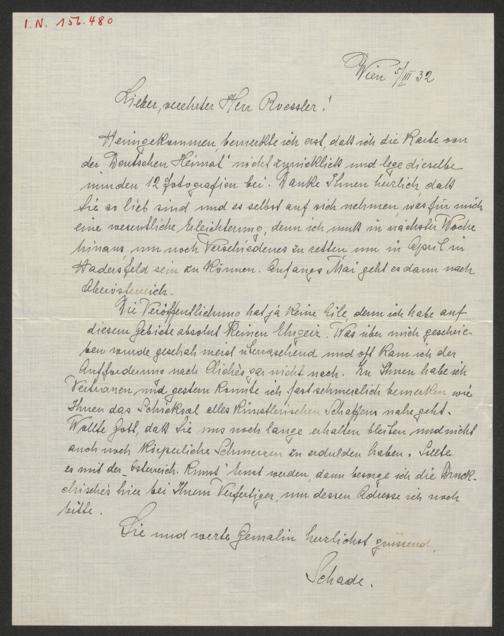 I.N. 156.480
Wien 5/III 32
Lieber, verehrter Herr Roessler!
Heimgekommen bemerkte ich erst, daß ich die Karte von
der "Deutschen Heimat" nicht zurückließ und lege dieselbe
nun den 12 Fotografien bei. Danke Ihnen herzlich daß
Sie so lieb sind und es selbst auf sich nehmen, was für mich
eine wesentliche Erleichterung, denn ich muß in nächster Woche
hinaus, um noch Verschiedenes zu um in April in
Hadersfeld sein zu können. Anfangs Mai geht es dann nach
Oberösterreich.
Die Veröffentlichung hat ja keine Eile, denn ich habe auf
diesem Gebiete absolut keinen Ehrgeiz. Was über mich geschrie-
ben wurde, geschah meist überraschend und oft kam ich der
Aufforderung nach Clichés gar nicht nach. Zu Ihnen habe ich
Vertrauen und gestern konnte ich fast schmerzlich bemerken wie
Ihnen das Schicksal alles künstlerischen Schaffens nahe geht.
Wollte Gott, daß Sie uns noch lange erhalten bleiben und nicht
auch noch körperliche Schmerzen zu erdulden haben. Sollte
es mit der "österreich. Kunst" ernst werden, dann besorge ich die Druck-
clichés hier bei Ihrem Verfertiger, um dessen Adresse ich noch
bitte.
Sie und werte Gemalin herzlichst grüssend,
Schade.